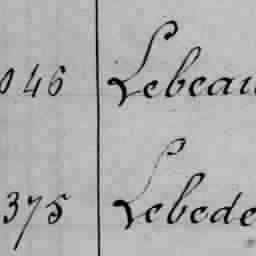 046 Lebeau
375 Lebede